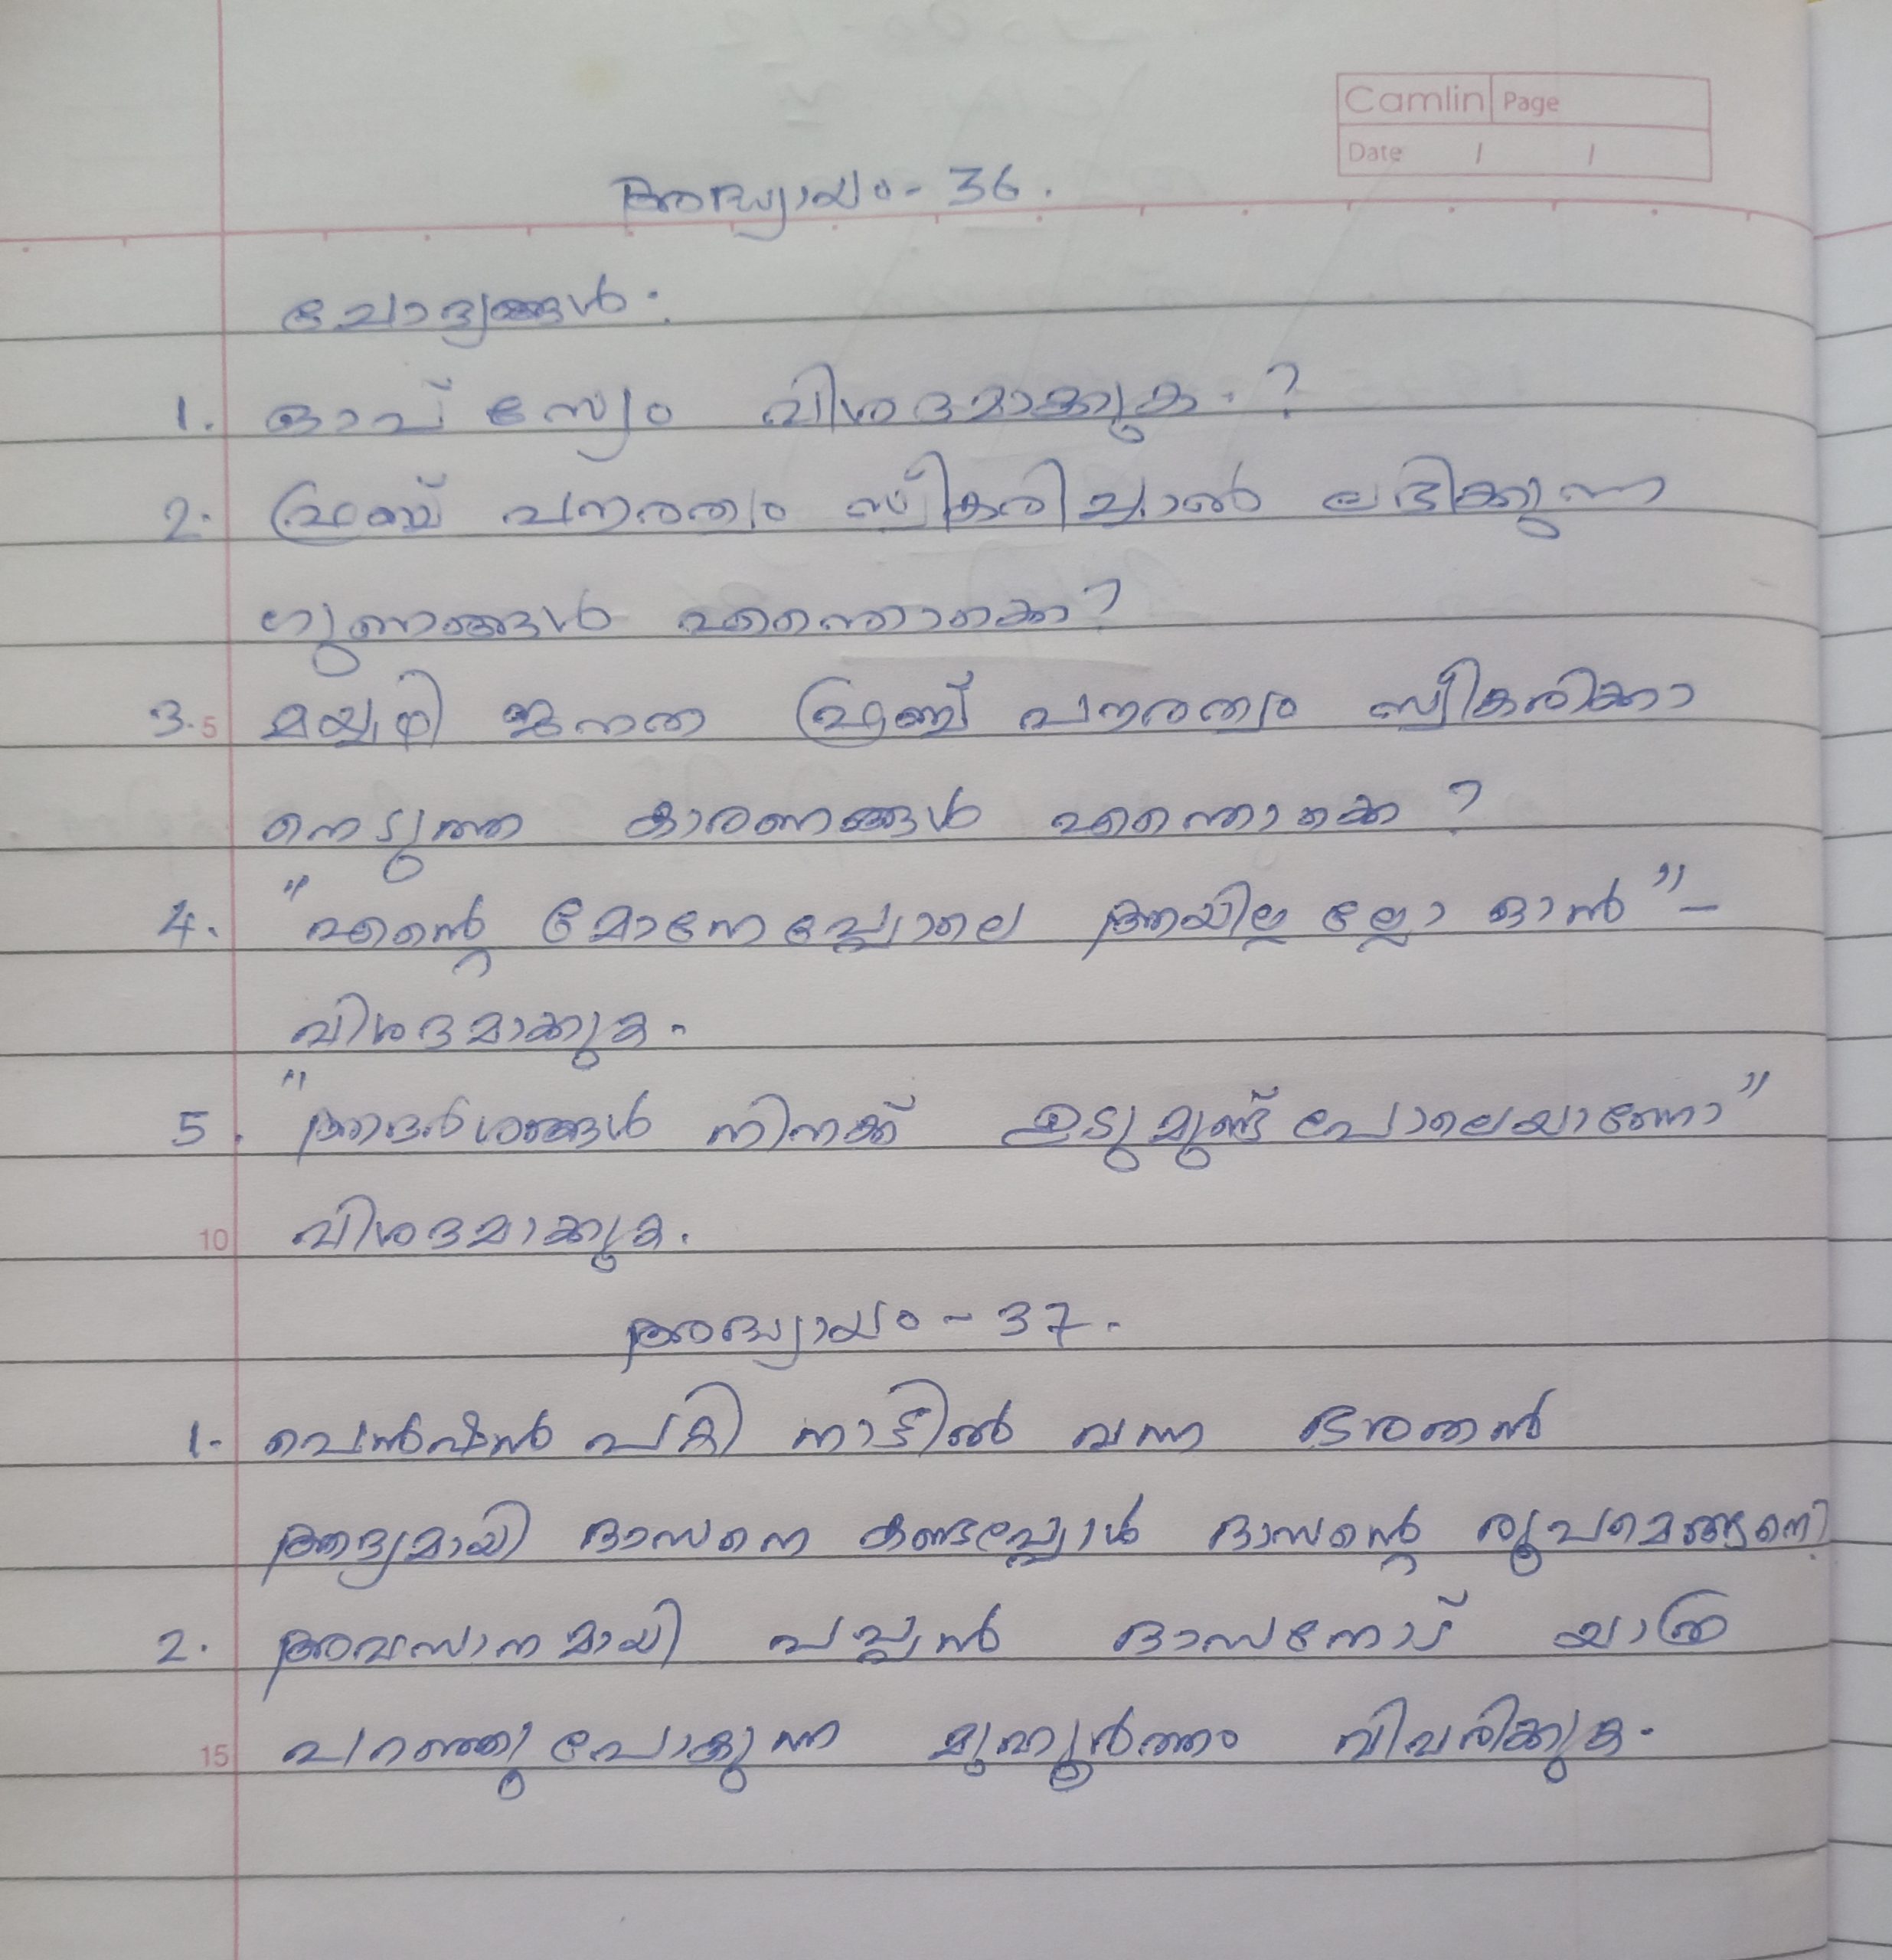 Camlin Page
Date / /
അദ്ധ്യായം - 36.
ചോദ്യങ്ങൾ:
1. വിശദമാക്കുക.?
2. ഫ്രഞ്ച് പൗരത്വം സ്വീകരിച്ചാൽ ലഭിക്കുന്ന
ഗുണങ്ങൾ എന്തൊക്കെ?
3. 5 മയ്യഴി ജനത ഫ്രഞ്ച് പൗരത്വം സ്വീകരിക്കാ
നെടുത്ത കാരണങ്ങൾ എന്തൊക്കെ?
4. "എന്റെ മോനേപ്പോലെ ആയില്ലല്ലോ ഓൻ" -
വിശദമാക്കുക.
5. "ആദർശങ്ങൾ നിനക്ക് ഉടുമുണ്ട് പോലെയാണോ"
10 വിശദമാക്കുക.
അദ്ധ്യായം - 37.
1. പെൻഷൻ പറ്റി നാട്ടിൽ വന്ന ഭരതൻ
ആദ്യമായി ദാസനെ കണ്ടപ്പോൾ ദാസന്റെ രൂപമെങ്ങനെ?
2. അവസാനമായി പപ്പൻ ദാസനോട് യാത്ര
15 പറഞ്ഞു പോകുന്ന മുഹൂർത്തം വിവരിക്കുക.